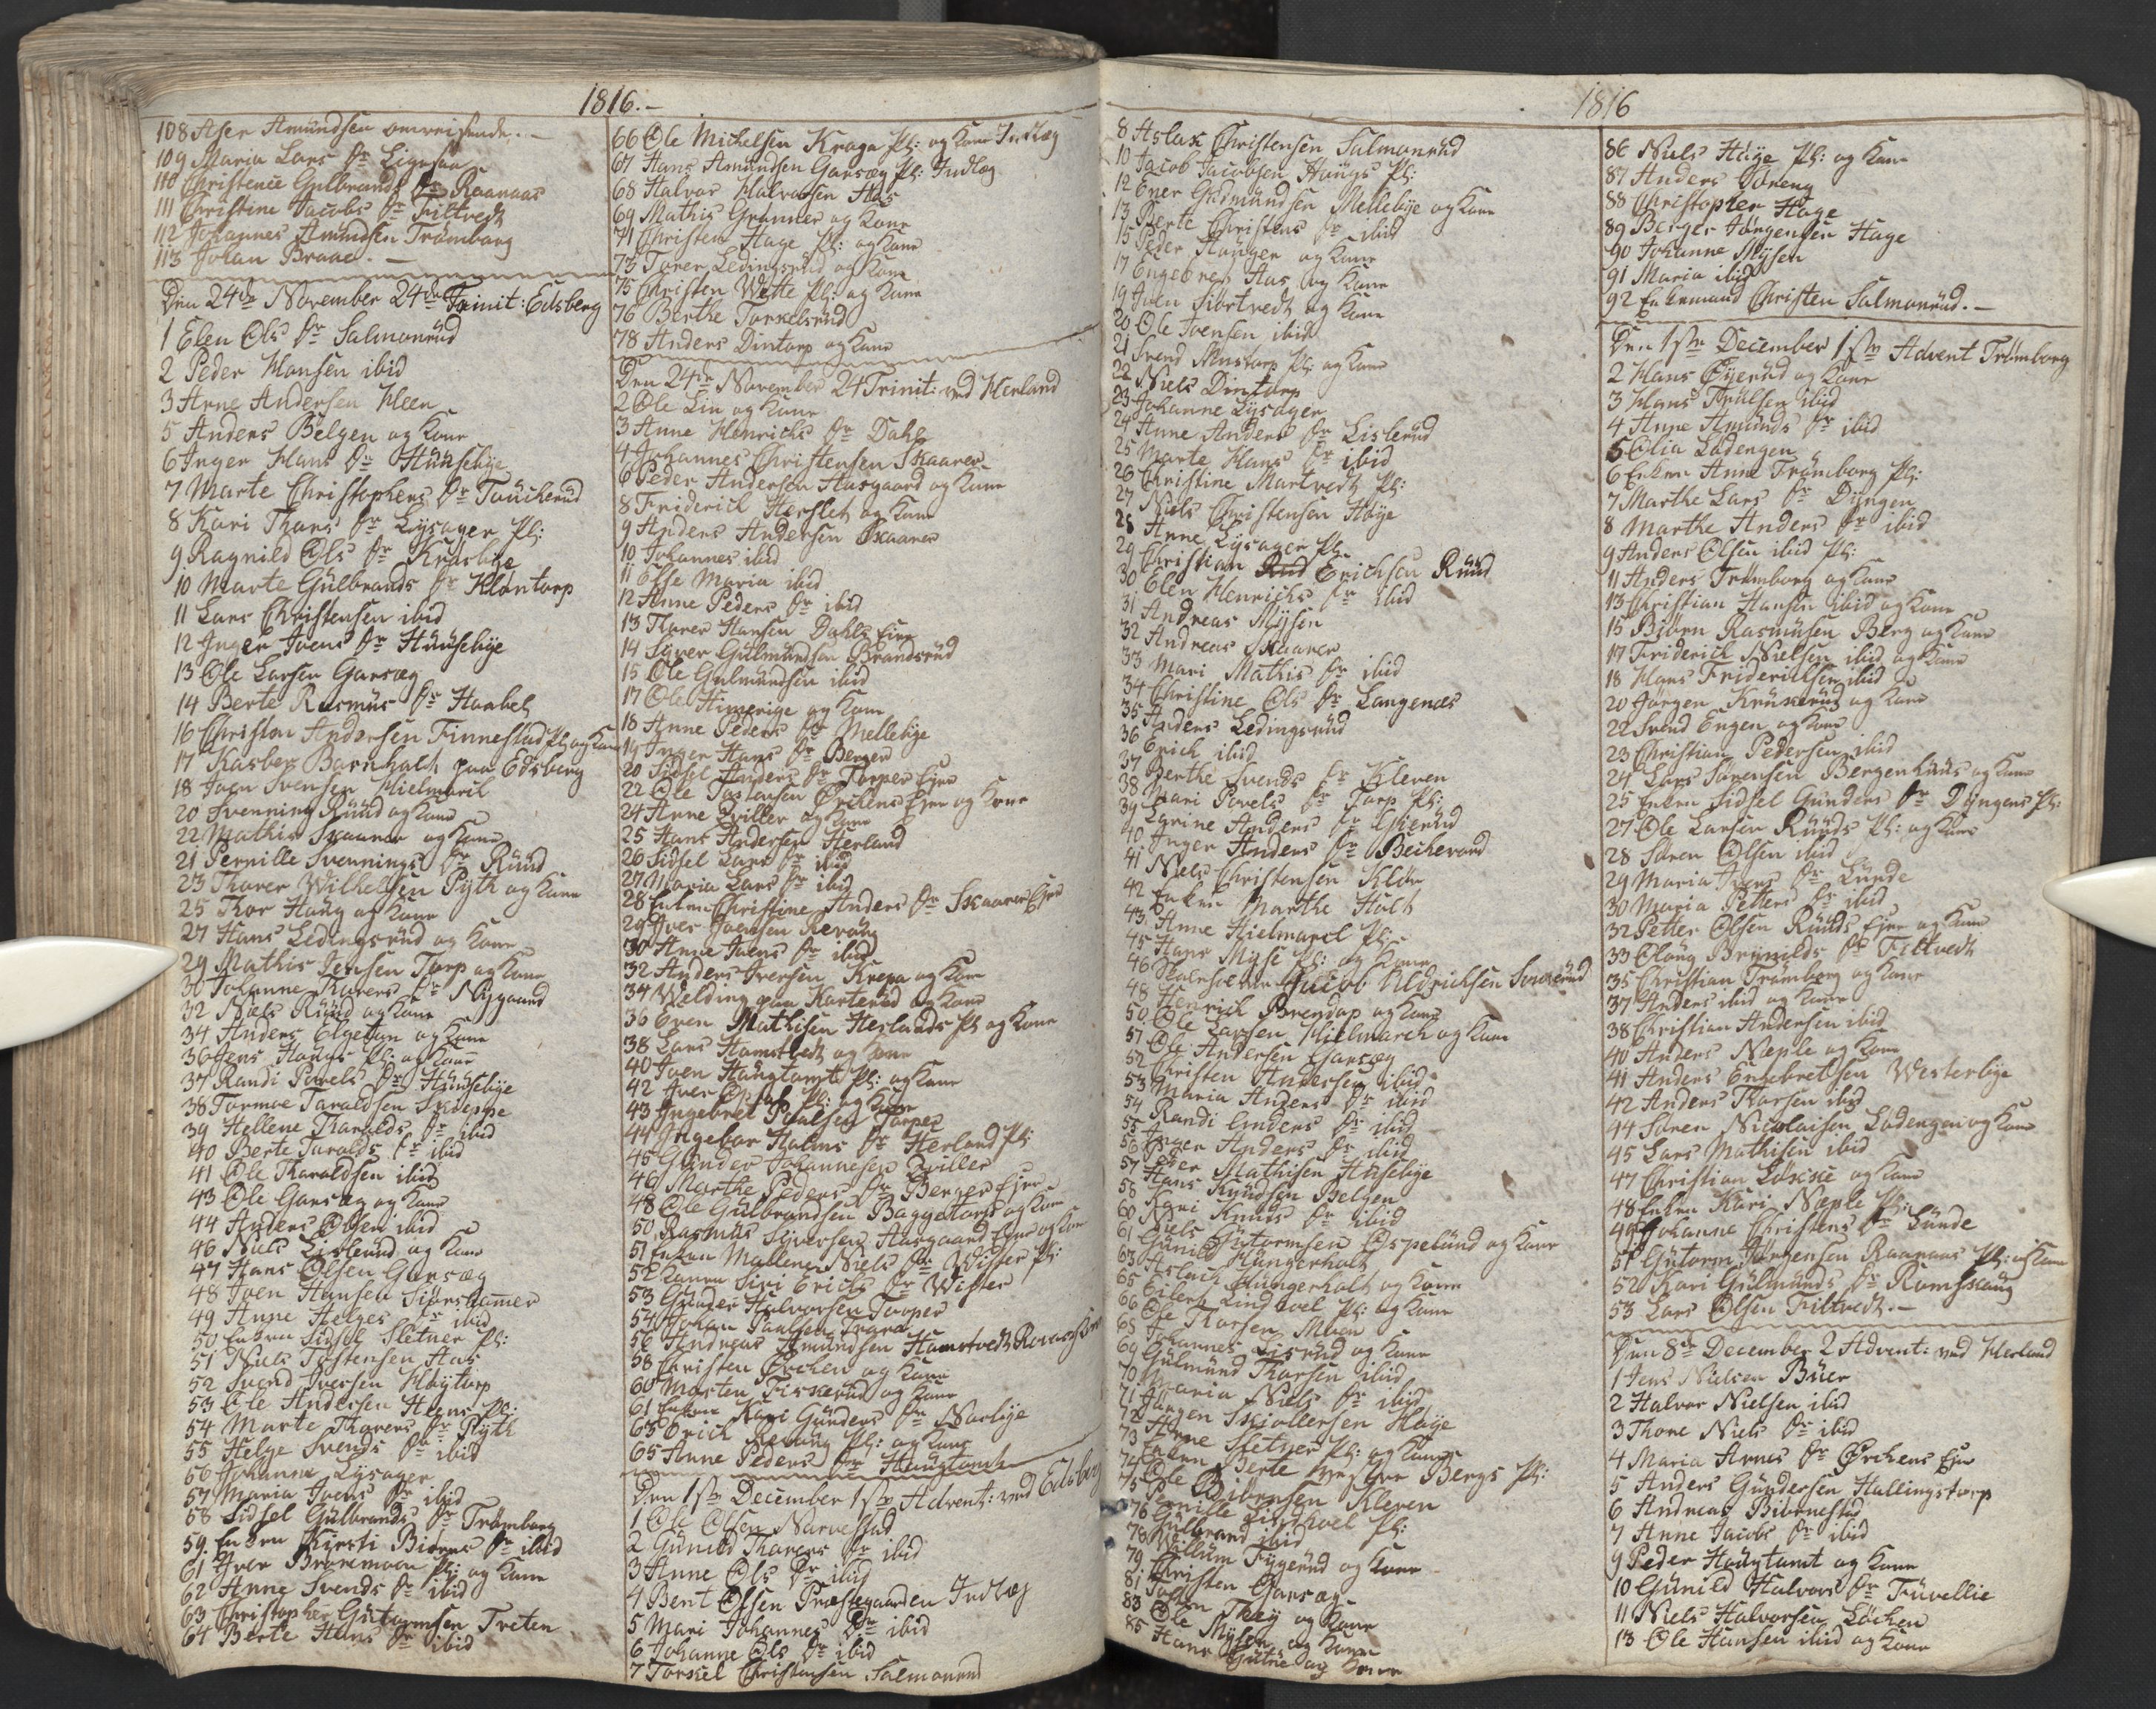 1816.-
108 Aser Amundsen omreisende.-
109 Maria Lars Dr Lignsaa
110 Christence Gulbrands Dr Raanaas
111 Christine Jacobs Dr Filtvedt
112 Johannes Amundsen Trømborg
113 Johan Braae.-
Den 24de November 24de Trinit: Edsberg
1 Elen Ols Dr Salmonrud
2 Peder Hansen ibid
3 Arne Andersen Heen
5 Anders Belgen og Kone
6 Inger Hans Dr Huusebye
7 Marte Christophers Dr Toucherud
8 Kari Thors Dr Lysager Pl:
9 Ragnild Ols Dr Krosbye
10 Marte Gulbrands Dr Kløntorp
11 Lars Christensen ibid
12 Inger Ivers Dr Huusebye
13 Ole Larsen Garsæg
14 Berte Rasmus Dr Haabet
16 Christen Andersen Finnestad Pl: og Kone
17 Kasber Barnholt paa Edsberg
18 Joen Svensen Hielmark
20 Svenning Ruud og Kone
22 Mathis Skaarer og Kone
21 Pernille Svennings Dr Ruud
23 Thorer Wilhelsen Pyth og Kone
25 Thor Haug og Kone
27 Hans Ledingsrud og Kone
29 Mathis Jensen Torp og Kone
30 Johanne Thorers Dr Nygaard
32 Niels Ruud og Kone
34 Anders Elgetun og Kone
36 Jens Haugs Pl: og Kone
37 Randi Povels Dr Huusebye
38 Tormoe Taraldsen Skieppe
39 Hellene Tharalds Dr ibid
40 Berte Taralds Dr ibid
41 Ole Tharaldsen ibid
43 Ole Garsæg og Kone
44 Anders Olsen ibid
46 Niels Lislerud og Kone
47 Hans Olsen Garsæg
48 Joen Hansen Siørshammer
49 Anne Helges Dr ibid
50 Enken Sidsel Sletner Pl:
51 Niels Tostensen Aas
52 Svend Iversen Høytorp
53 Ole Andersen Heens Pl:
54 Marte Thorers Dr Pyth
55 Helge Svends Dr ibid
56 Johanne Lysager
57 Maria Joens Dr ibid
58 Sidsel Gulbrands Dr Trømborg
59. Enken Kirsti Biørns Dr ibid
61 Iver Braremoen Pl: og Kone
62 Anne Svends Dr ibid
63 Christopher Gutormsen Treten
64 Berte Hans Dr ibid
66 Ole Michelsen Kraga Pl: og Kone Indlæg
67 Hans Amundsen Garsæg Pl: Indlæg
68 Halvor Halvorsen Aas
69 Mathis Grønner og Kone
71 Christen Hage Pl: og Kone
73 Torer Ledingsrud og Kone
75 Christen Wette Pl: og Kone
76 Berthe Torkelsrud
78 Anders Dintorp og Kone
Den 24de November 24 Trinit: ved Herland
2 Ole Lin og Kone
3 Anne Henrichs Dr Dahl
4 Johannes Christensen Skaarer
6 Peder Andersen Aasgaard og Kone
8 Friderich Herslet og Kone
9 Anders Andersen Skaarer
10 Johannes ibid
11 Else Maria ibid
12 Anne Peders Dr ibid
13 Thorer Hansen Dahls Eje
14 Syver Gulmundsen Brandsrud
15 Ole Gulmundsen ibid
17 Ole Himerige og Kone
18 Anne Peders Dr Mellebye
19 Inger Hans Dr Berger
20 Sidsel Anders Dr Torper Eje
22 Ole Tostensen Ørchens Eje og Kone
24 Arne Qviller og Kone
25 Hans Andersen Herland
26 Sidsel Lars Dr ibid
27 Maria Lars Dr ibid
28 Enken Christine Anders Dr Skaarer Eje
29 Iver Joensen Revaug
30 Anne Joens Dr ibid
32 Anders Iversen Krepa og Kone
34 Welding paa Karterud og Kone
36 Even Mathisen Herlands Pl: og Kone
38 Lars Hamstvedt og Kone
40 Joen Haugtomt Pl: og Kone
42 Iver Opsal Pl: og Kone
43 Ingebret Poulsen Torper
44 Ingebor Holms Dr Herland Pl:
45 Gunder Johannesen Qviller
46 Marthe Peders Dr Berger Eje
48 Ole Gulbrandsen Baggetorp og Kone
50 Rasmus Syversen Aasgaard Eje og Kone
51 Enken Mallene Niels Dr Wister Pl:
52 Konen Siri Erichs Dr Wister
53 Gunder Halvorsen Torper
54 Johan Paulsen Trara
56 Andreas Amundsen Hamstvedt
58 Christen Ørchen og Kone
60 Morten Fiskerud og Kone
61 Enken Kari Gunders Dr Norbye
63 Erich Revaug Pl: og Kone
65 Anne Peders Dr Haugtomt
Den 1ste December 1ste Advent: ved Edsberg
1 Ole Olsen Narvestad
2 Gunild Thorers Dr ibid
3 Anne Ols Dr ibid
4 Bent Olsen Præstegaarden Indlæg
5 Mari Johannes Dr ibid
6 Johanne Ols Dr ibid
7 Torkel Christensen Salmonrud
1816
8 Aslak Christensen Salmonrud
10 Jacob Jacobsen Haugs Pl:
12 Ener Gudmundsen Mellebye og Kone
13 Berte Christens Dr ibid
15 Peder Haugen og Kone
17 Engebret Aas og Kone
19 Joen Siortvedt og Kone
20 Ole Joensen ibid
21 Svend Mustorp Pl: og Kone
22 Niels Dintorp
23 Johanne Lysager
24 Anne Anders Dr Lislerud
25 Marte Hans Dr ibid
26 Christine Martvedt Pl:
27 Niels Christensen Høye
28 Anne Lysager Pl:
29 Christian Erichsen Ruud
30 Elen Henrichs Dr ibid
31 Andreas Mysen
32 Andreas Skaarer
33 Mari Mathis Dr ibid
34 Christine Ols Dr Langenæs
35 Anders Ledingsrud
36 Erich ibid
37 Berthe Svends Dr Kleven
38 Mari Povels Dr Torp Pl:
39 Karine Anders Dr Gierud
40 Inger Anders Dr Bechevard
41 Niels Christensen Kløn
42 Enken Marthe Holt
43. Anne Hielmarck Pl:
45 Hans Myse Pl: og Kone
46 Skolholder Jacob Uldrichsen
48 Henrich Brendop og Kone
50 Ole Larsen Hielmarch og Kone
51 Ole Andersen Garsæg
52 Christen Andersen ibid
53 Maria Anders Dr ibid
54 Randi Anders Dr ibid
55 Inger Anders Dr ibid
56 Peder Mathisen Huusebye
57 Hans Knudsen Belgen
58 Kari Knuds Dr ibid
60 Niels Gutormsen Espelund og Kone
61 Gunild Hungerholt
63 Aslach Hungerholt og Kone
65 Eilert Lindhoel Pl: og Kone
66 Ole Thorsen Moen
68 Johannes Lisrud og Kone
69 Gulmund Thorsen ibid
70 Maria Niels Dr ibid
71 Jørgen Skiollersen Høye
72 Arne Sletner Pl: og Kone
73 Enken Berte Bergs Pl:
74 Ole Biørnsen Kleven
75 Pernille Lindhoel Pl:
76 Gulbrand ibid
78 Willum Fygerud og Kone
79 Christen Garsæg
81 Joen Thøy og Kone
83 Ole Mysen og Kone
85 Hans Gutue og Kone
86 Niels Høye Pl: og Kone
87 Anders Toreng
88 Christopher Hage
89 Berger Jørgensen Hage
90 Johanne Mysen
91 Maria ibid
92 Enkemand Christen Salmonrud.-
Den 1ste December 1ste Advent Trømborg
2 Hans Øyerud og Kone
3 Hans Truelsen ibid
4 Anne Amunds Dr ibid
5 Olia Ladengen
6 Enken Anne Trømborg Pl:
7 Marthe Lars Dr Dyngen
8 Marthe Anders Dr ibid
9 Anders Olsen ibid Pl:
11 Anders Trømborg og Kone
13 Christian Hansen ibid og Kone
15 Biørn Rasmusen Berg og Kone
17 Friderich Nielsen ibid og Kone
18 Hans Friderichsen ibid
20 Jørgen Kruserud og Kone
22 Svend Engen og Kone
23 Christian Pedersen ibid
24 Lars Sørensen Bergenhuus og Kone
25 Enken Sidsel Gunders Dr Dyngens Pl:
27 Ole Larsen Ruuds Pl: og Kone
28 Søren Olsen ibid
29 Maria Ivers Dr Lunde
30 Maria Petters Dr ibid
32 Petter Olsen Ruuds Eje og Kone
33 Olaug Brynilds Dr Filtvedt
35 Christian Trømborg og Kone
37 Anders ibid og Kone
38 Christian Andersen ibid
40 Anders Næple og Kone
41 Anders Engebretsen Westerbye
42 Anders Thorsen ibid
44 Søren Nicolaisen Ladengen og Kone
45 Lars Mathisen ibid
47 Christian Løkke og Kone
48 Enken Kari Næple Pl:
49 Johanne Christens Dr Lunde
51 Gutorm Jørgensen Raanaas Pl: og Kone
52 Kari Gulmunds Dr Romskaug
53 Lars Olsen Filtvedt.-
Den 8de December 2 Advent: ved Herland
1 Jens Nielsen Buer
2 Halvor Nielsen ibid
3 Thone Niels Dr ibid
4 Maria Arnes Dr Ørchens Eje
5 Anders Gundersen Hallingstorp
6 Andreas Biørnestad
7 Anne Jacobs Dr ibid
9 Peder Haugtomt og Kone
10 Gunild Halvors Dr Tuvellie
11 Niels Halvorsen Løchen
13 Ole Hansen ibid og Kone